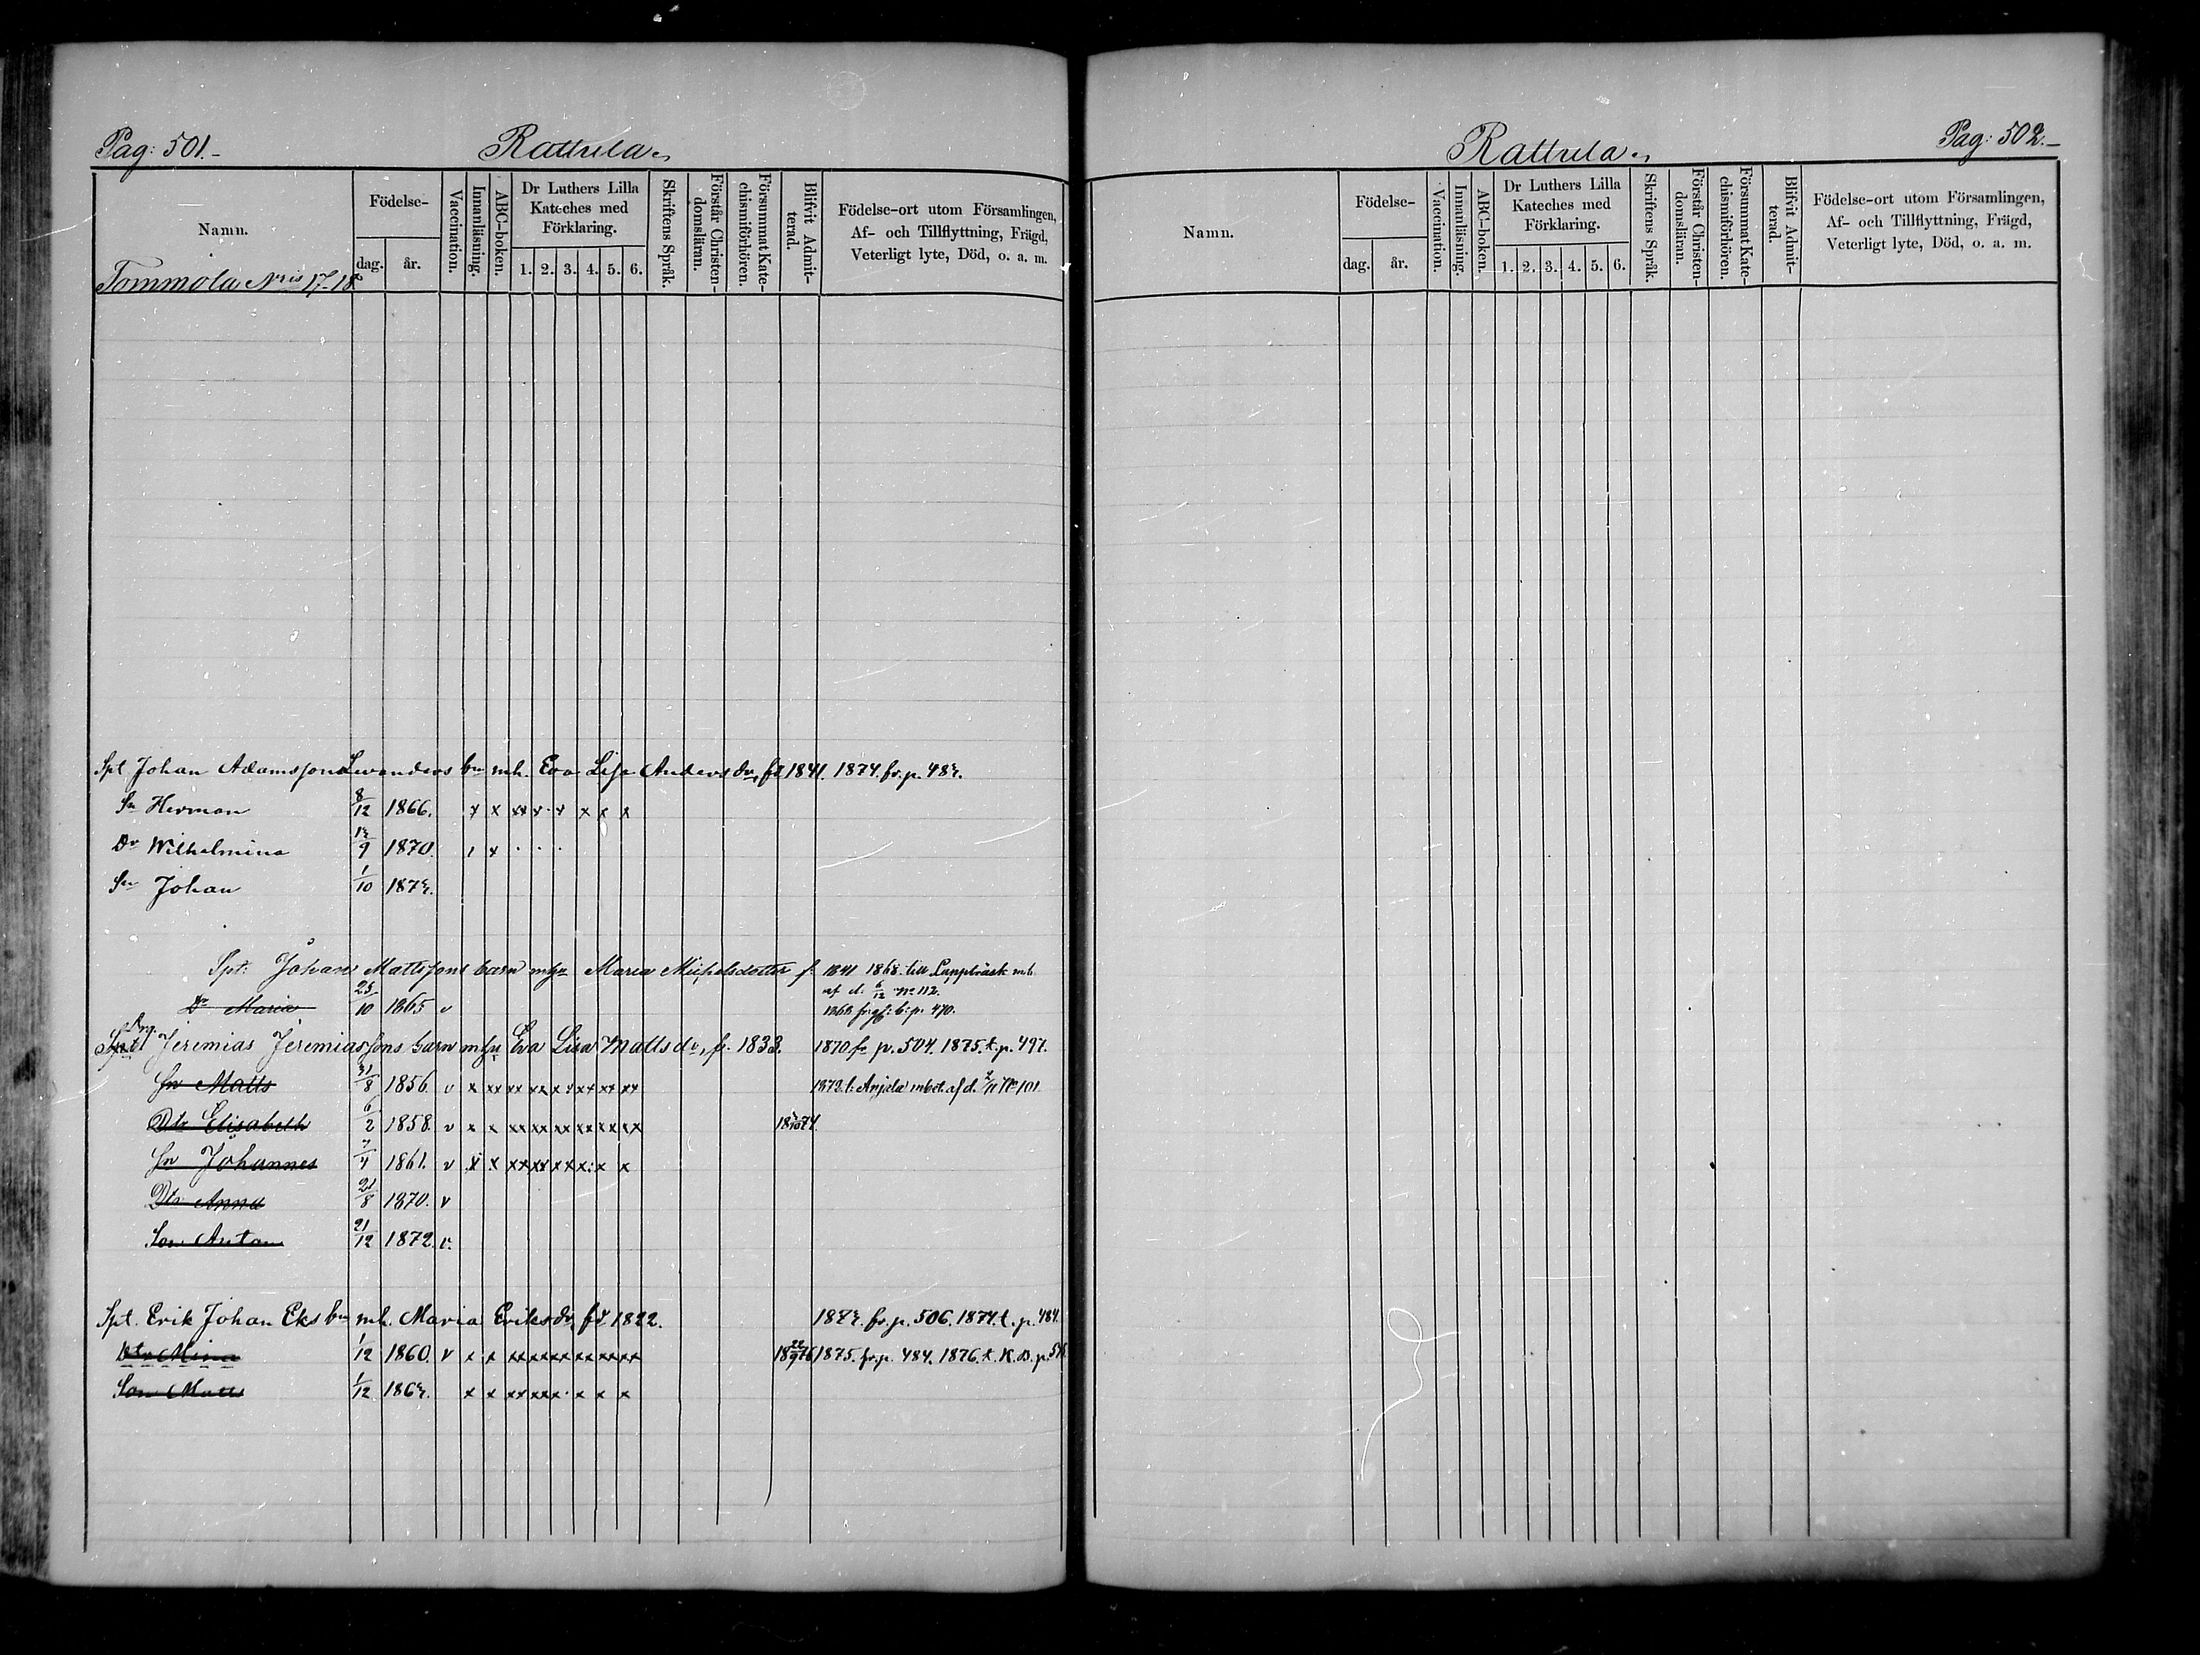 Pag: 501.
Rattula.
Namn.
Födelse-
dag. år.
Vaccination.
Innanläsning.
ABC-boken.
Dr Luthers Lilla
Kateches med
Förklaring.
1. 2. 3. 4. 5. 6.
Skriftens Språk.
Förstår Christen-
domsläran.
Försummat Kate-
chismiförhören.
Blifvit Admit-
terad.
Födelse-ort utom Församlingen,
Af- och Tillflyttning, Frägd,
Veterligt lyte, Död, o. a. m.
Tommola N:ris 17-18
Spt Johan Adamssons Levanders bn m.h. Eva Lisa Anders dr, fd 1841. 1874. fr. p. 483.
Sn Herman 8/12 1866. x x xx x · x x x x
Dr Wilhelmina 13/9 1870. x
Sn Johan 1/10 1873.
Spt. Johan Mattssons barn m hu Maria Michelsdotter f. 1841 1868. till Lappträsk m.b.
af d. 6/12 No 112.
Dr Maria 23/10 1865 v 1868 p. 470.
Spt Jeremias Jeremiassons barn m hu Eva Lisa Matts dr, f. 1833. 1870 fr p. 504. 1875. t. p. 497.
Sn Matts 31/8 1856. v x xx xx xx xx xx xx xx 1873. t. Anjala mbet. af d. 2/11 No 101
Dtr Elisabeth 6/2 1858. v x x xx xx xx xx xx xx 1874
Sn Johannes 7/4 1861. v x x xx xx xx x x x
Dtr Anna 21/8 1870. v
Son Anton 21/12 1872. v.
Spt. Erik Johan Eks bn m.h. Maria Eriksdr, fd 1822. 1873. fr. p. 506. 1874. t. p. 484.
Dtr Mina 1/12 1860. v x x xx xx xx xx xx xx 18 22/9 76 1875. fr. p. 484. 1876. t. K. B. p.
Son Matts 1/12 1863. x x xx xx x · x x x
Pag: 502.
Rattula.
Namn.
Födelse-
dag. år.
Vaccination.
Innanläsning.
ABC-boken.
Dr Luthers Lilla
Kateches med
Förklaring.
1. 2. 3. 4. 5. 6.
Skriftens Språk.
Förstår Christen-
domsläran.
Försummat Kate-
chismiförhören.
Blifvit Admit-
terad.
Födelse-ort utom Församlingen,
Af- och Tillflyttning, Frägd,
Veterligt lyte, Död, o. a. m.